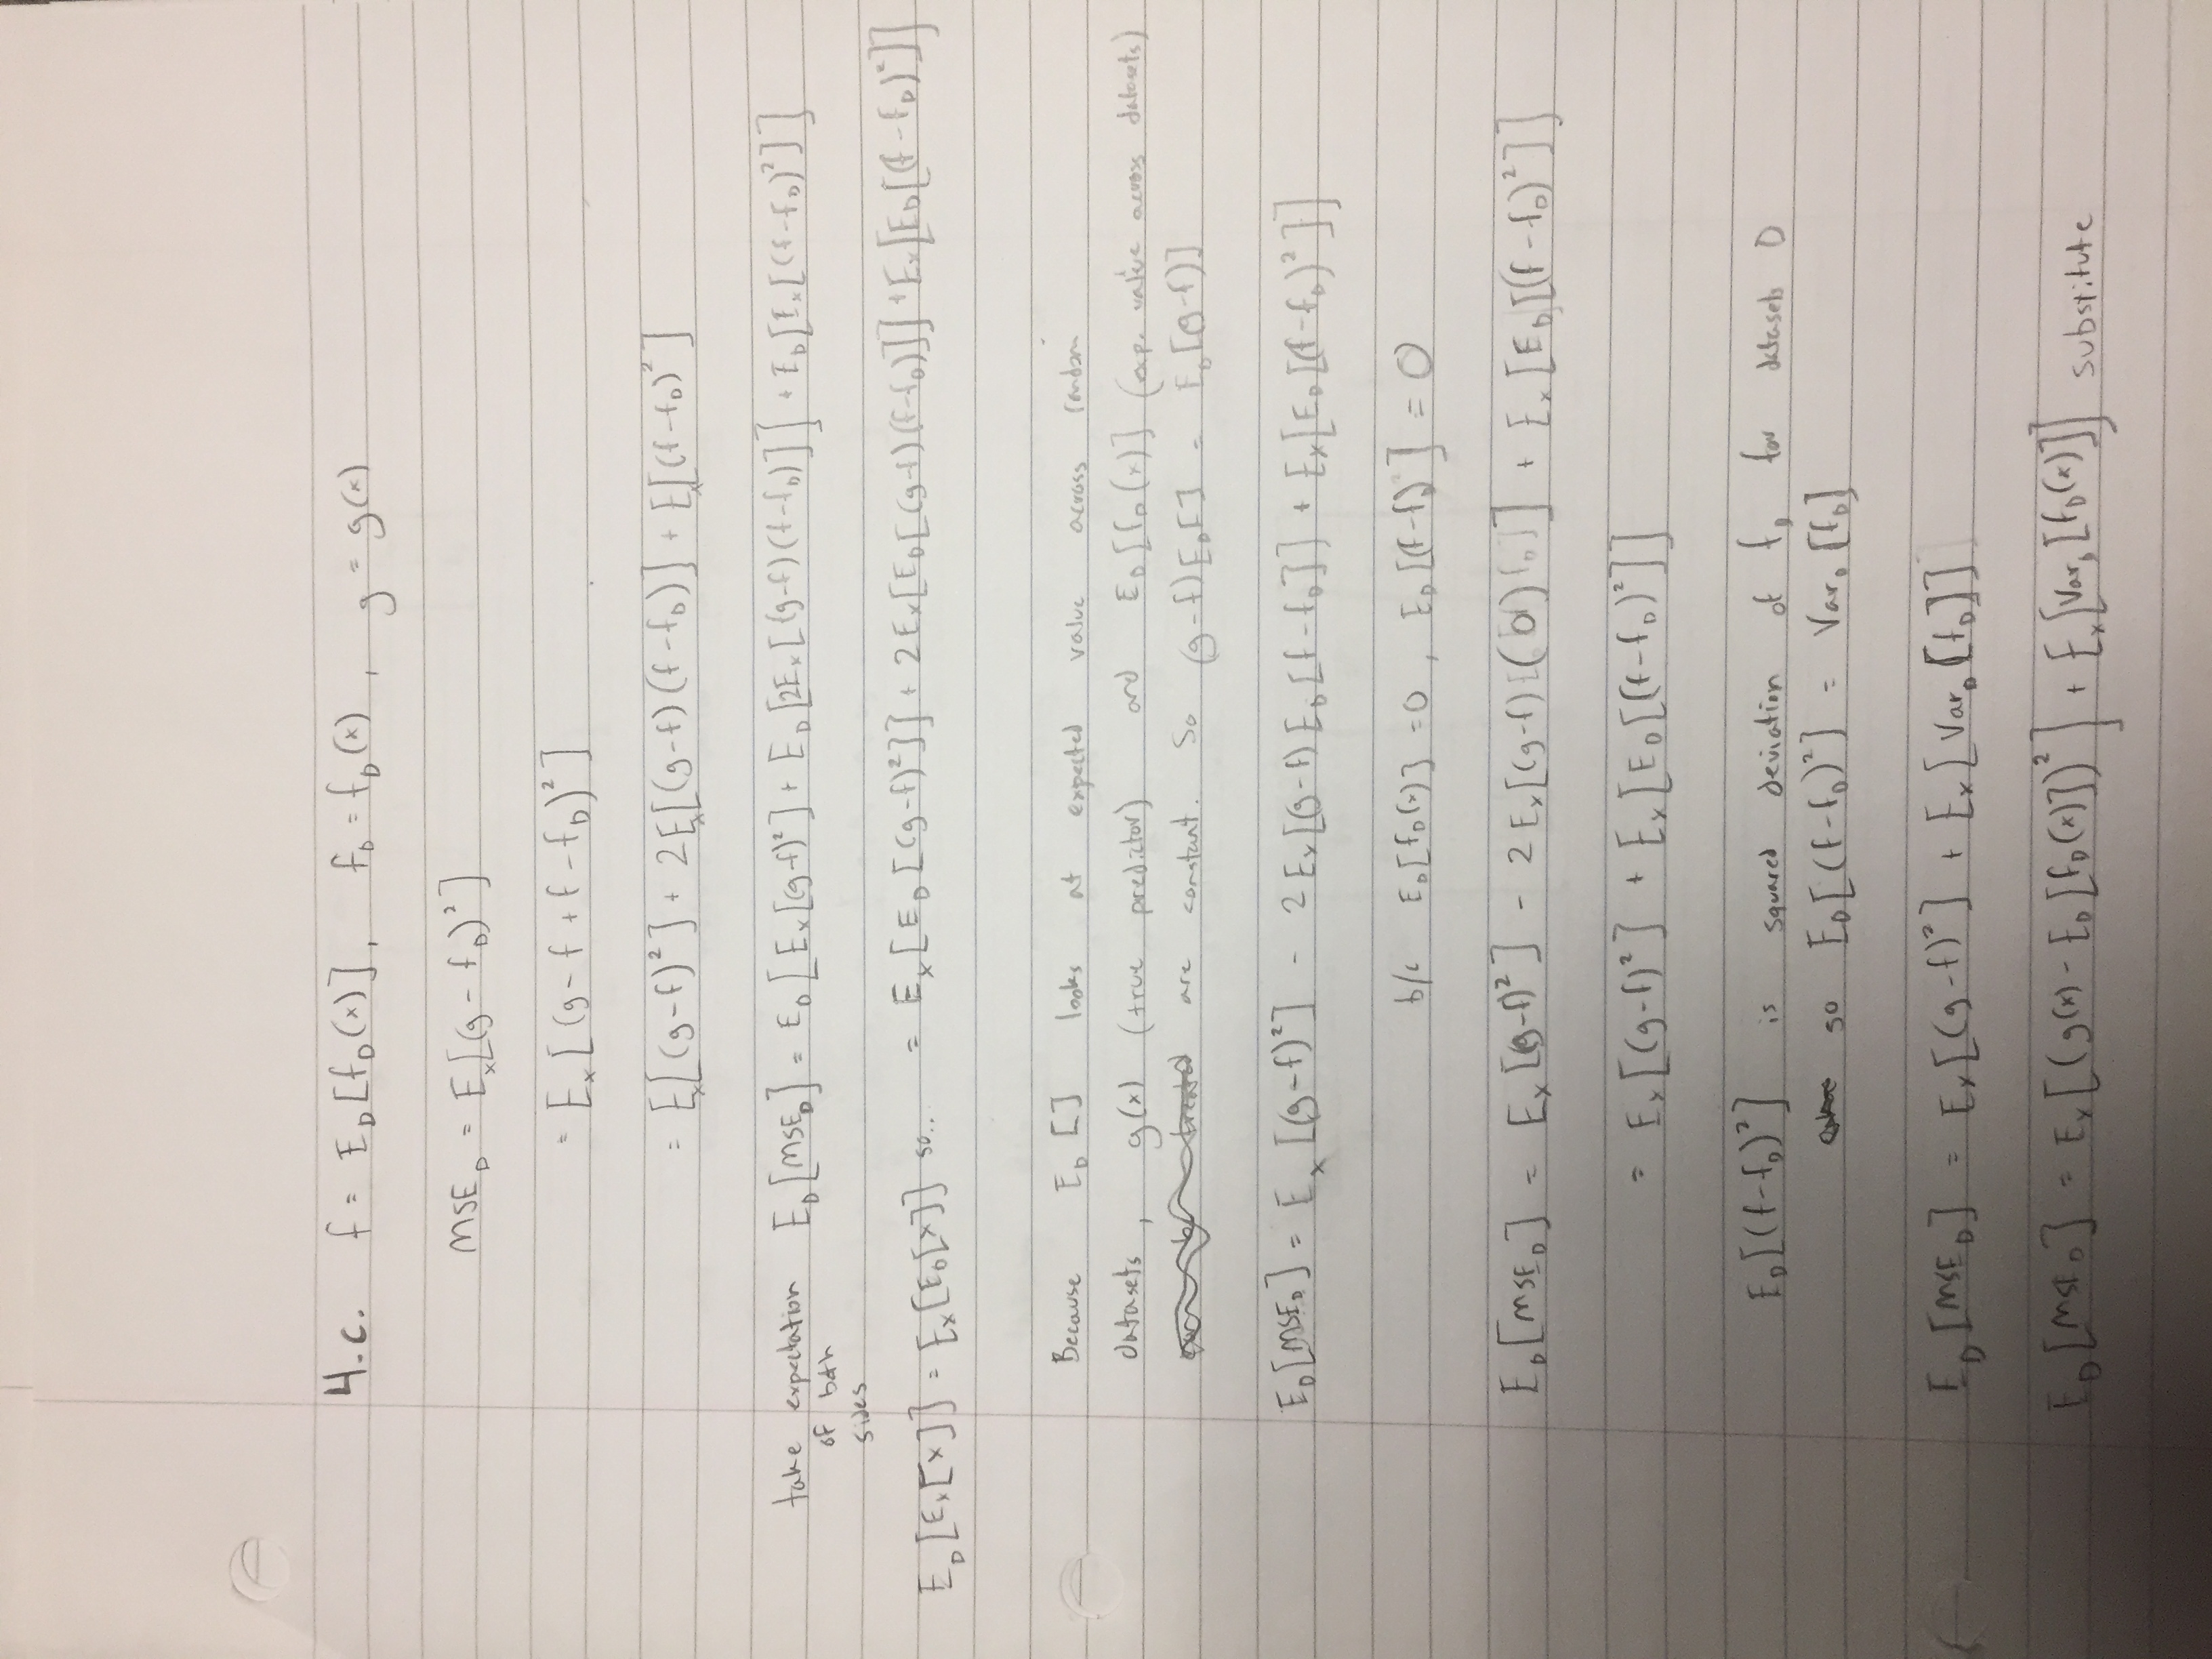 4.c. f = E_D[f_D(x)], f_D = f_D(x), g = g(x)
MSE_D = E_x[(g - f_D)²]
= E_x[(g - f + f - f_D)²]
= E_x[(g-f)²] + 2E_x[(g-f)(f-f_D)] + E_x[(f-f_D)²]
take expectation of both sides E_D[MSE_D] = E_D[E_x[(g-f)²] + E_D[2E_x[(g-f)(f-f_D)]] + E_D[E_x[(f-f_D)²]]
E_D[E_x[x]] = E_x[E_D[x]] so.. = E_x[E_D[(g-f)²]] + 2E_x[E_D[(g-f)(f-f_D)]] + E_x[E_D[(f-f_D)²]]
Because E_D[] looks at expected value across random
datasets, g(x) (true predictor) and E_D[f_D(x)] (exp. value across datasets)
are constant. So (g-f)E_D[] = E_D[(g-f)]
E_D[MSE_D] = E_x[(g-f)²] - 2E_x[(g-f)E_D[f-f_D]] + E_x[E_D[(f-f_D)²]]
b/c E_D[f_D(x)] = 0, E_D[(f-f_D)] = 0
E_D[MSE_D] = E_x[(g-f)²] - 2E_x[(g-f)(0)] + E_x[E_D[(f-f_D)²]]
= E_x[(g-f)²] + E_x[E_D[(f-f_D)²]]
E_D[(f-f_D)²] is squared deviation of f_D for datasets D
so E_D[(f-f_D)²] = Var_D[f_D]
E_D[MSE_D] = E_x[(g-f)²] + E_x[Var_D[f_D]]
E_D[MSE_D] = E_x[(g(x) - E_D[f_D(x)])²] + E_x[Var_D[f_D(x)]] substitute